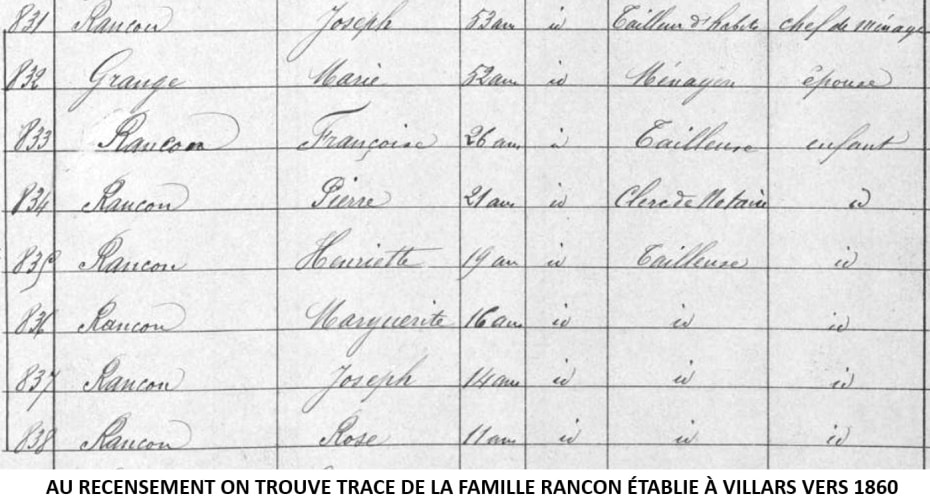 831 Rancon Joseph 53 ans id Tailleur d'habits chef de ménage
832 Grange Marie 52 ans id Ménagère épouse
833 Rancon Françoise 26 ans id Tailleuse enfant
834 Rancon Pierre 21 ans id Clerc de Notaire id
835 Rancon Henriette 19 ans id Tailleuse id
836 Rancon Marguerite 16 ans id id id
837 Rancon Joseph 14 ans id id id
838 Rancon Rose 11 ans id id id
AU RECENSEMENT ON TROUVE TRACE DE LA FAMILLE RANCON ÉTABLIE À VILLARS VERS 1860